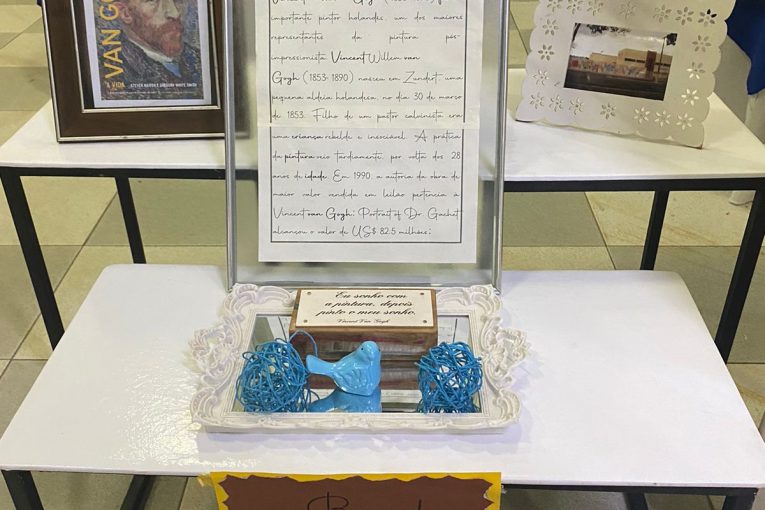 VAN GO
A VIDA
STEVEN NAIFEH E GREGORY WHITE SMITH
importante pintor holandês, um dos maiores
representantes da pintura pós-
impressionista. Vincent Willem van
Gogh (1853-1890) nasceu em Zundert, uma
pequena aldeia holandesa, no dia 30 de março
de 1853. Filho de um pastor calvinista era
uma criança rebelde e insociável. A prática
da pintura veio tardiamente, por volta dos 28
anos de idade. Em 1990, a autoria da obra de
maior valor vendida em leilão pertencia a
Vincent van Gogh: Portrait of Dr. Gachet
alcançou o valor de US$ 82.5 milhões;
Eu sonho com
a pintura, depois
pinto o meu sonho.
Vincent Van Gogh